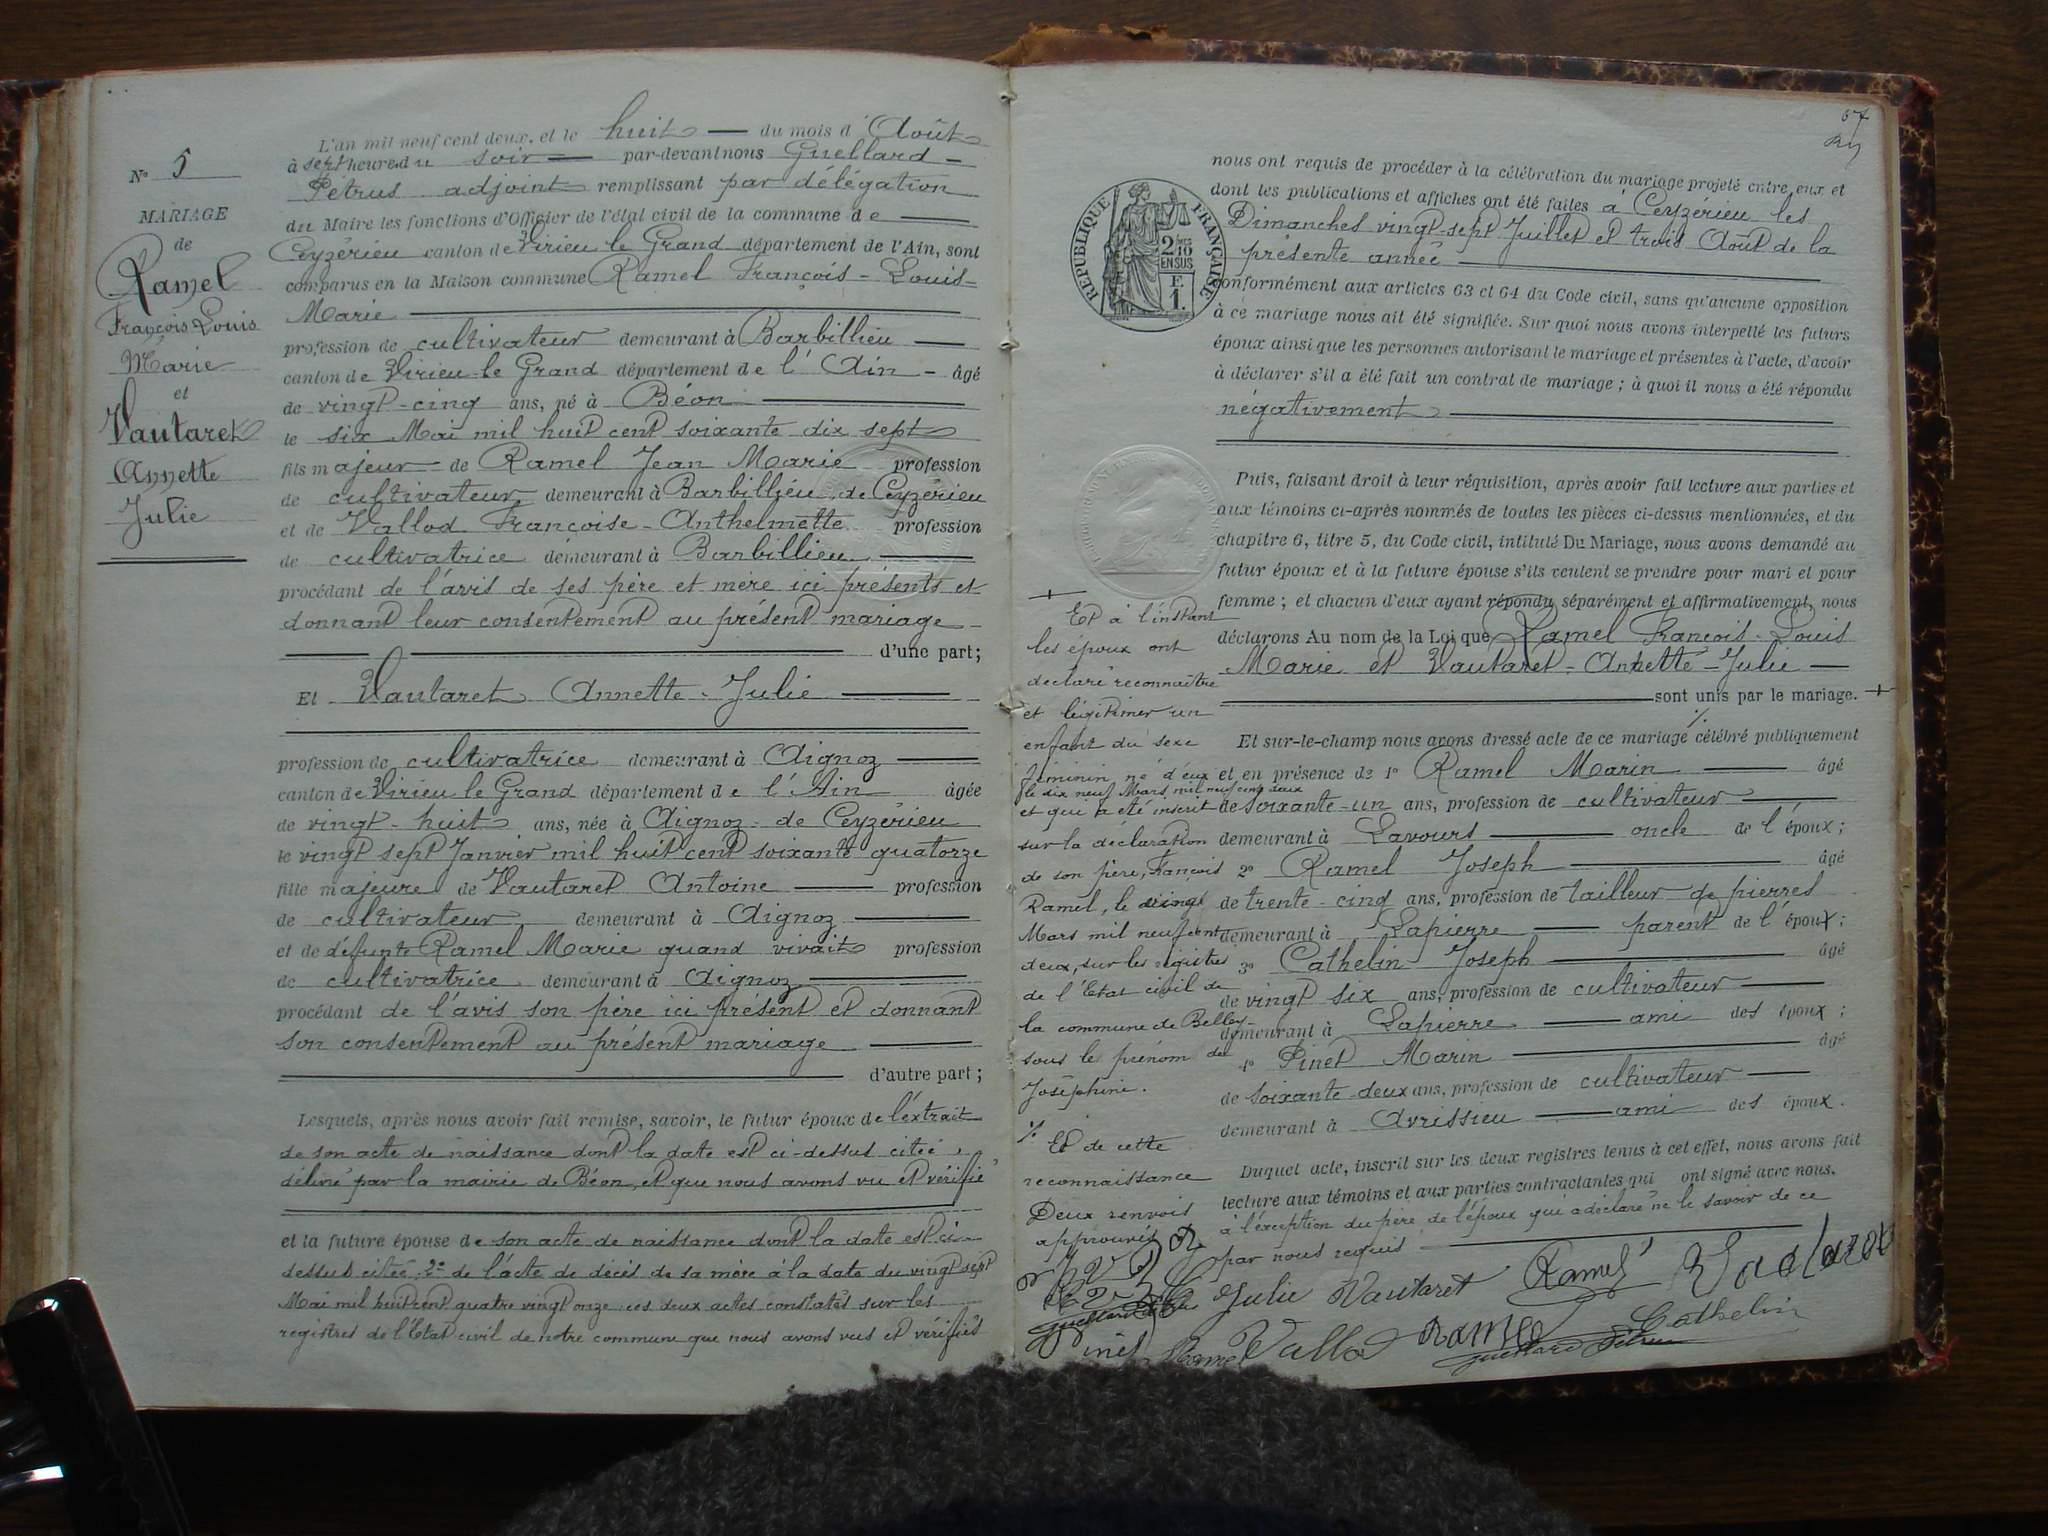 N° 5
MARIAGE
de
Ramel
François Louis
Marie
et
Vautaret
Annette
Julie
L'an mil neuf cent deux, et le huit du mois d'Août
à sept heures du soir par-devant nous Guellard
Pétrus adjoint remplissant par délégation
du Maire les fonctions d'Officier de l'état civil de la commune de
Ceyzérieu canton de Virieu le Grand département de l'Ain, sont
comparus en la Maison commune Ramel François-Louis-
Marie
profession de cultivateur demeurant à Barbillieu
canton de Virieu-le Grand département de l'Ain - âgé
de vingt-cinq ans, né à Béon
le six Mai mil huit cent soixante dix sept
fils majeur de Ramel Jean Marie profession
de cultivateur demeurant à Barbillieu de Ceyzérieu
et de Vallod Françoise-Anthelmette profession
de cultivatrice demeurant à Barbillieu
procédant de l'avis de ses père et mère ici présents et
donnant leur consentement au présent mariage
d'une part;
Et Vautaret Annette-Julie
profession de cultivatrice demeurant à Aignoz
canton de Virieu le Grand département de l'Ain âgée
de vingt-huit ans, née à Aignoz-de Ceyzérieu
le vingt sept Janvier mil huit cent soixante quatorze
fille majeure de Vautaret Antoine profession
de cultivateur demeurant à Aignoz
et de défunte Ramel Marie quand vivait profession
de cultivatrice demeurant à Aignoz
procédant de l'avis son père ici présent et donnant
son consentement au présent mariage
d'autre part;
Lesquels, après nous avoir fait remise, savoir, le futur époux de l'extrait
de son acte de naissance dont la date est ci-dessus citée,
délivré par la mairie de Béon, et que nous avons vu et vérifié
et la future épouse de son acte de naissance dont la date est ci-
dessus citée; 2° de l'acte de décès de sa mère à la date du vingt sept
Mai mil huit cent quatre vingt onze ces deux actes constatés sur les
registres de l'Etat civil de notre commune que nous avons vus et vérifiés
67
nous ont requis de procéder à la célébration du mariage projeté entre eux et
dont les publications et affiches ont été faites à Ceyzérieu les
Dimanches vingt-sept Juillet et trois Août de la
présente année
RÉPUBLIQUE FRANÇAISE
2 /10
EN SUS
F.
1.
conformément aux articles 63 et 64 du Code civil, sans qu'aucune opposition
à ce mariage nous ait été signifiée. Sur quoi nous avons interpellé les futurs
époux ainsi que les personnes autorisant le mariage et présentes à l'acte, d'avoir
à déclarer s'il a été fait un contrat de mariage; à quoi il nous a été répondu
négativement
Puis, faisant droit à leur réquisition, après avoir fait lecture aux parties et
aux témoins ci-après nommés de toutes les pièces ci-dessus mentionnées, et du
chapitre 6, titre 5, du Code civil, intitulé Du Mariage, nous avons demandé au
futur époux et à la future épouse s'ils veulent se prendre pour mari et pour
femme; et chacun d'eux ayant répondu séparément et affirmativement, nous
déclarons Au nom de la Loi que Ramel François-Louis
Marie et Vautaret-Annette-Julie
sont unis par le mariage. +
Et sur-le-champ nous avons dressé acte de ce mariage célébré publiquement
et en présence de 1° Ramel Marin âgé
de soixante-un ans, profession de cultivateur
demeurant à Lavours oncle de l'époux;
2° Ramel Joseph âgé
de trente-cinq ans, profession de tailleur de pierres
demeurant à Lapierre parent de l'époux;
3° Cathelin Joseph âgé
de vingt six ans, profession de cultivateur
demeurant à Lapierre ami des époux;
4° Pinet Marin âgé
de soixante-deux ans, profession de cultivateur
demeurant à Avrissieu ami des époux.
Duquel acte, inscrit sur les deux registres tenus à cet effet, nous avons fait
lecture aux témoins et aux parties contractantes qui ont signé avec nous.
à l'exception du père de l'époux qui a déclaré ne le savoir de ce
par nous requis
+
Et à l'instant
les époux ont
déclaré reconnaître
et légitimer un
enfant du sexe
féminin, né d'eux
le dix neuf Mars mil neuf cent deux
et qui a été inscrit
sur la déclaration
de son père, François
Ramel, le vingt
Mars mil neuf cent
deux, sur les registres
de l'Etat civil de
la commune de Belley
sous le prénom de
Joséphine.
Et de cette
reconnaissance
Deux renvois
approuvés
Julie Vautaret Ramel Vautaret
Pinet Ramel Vallod Ramel Cathelin
Guellard Pétrus